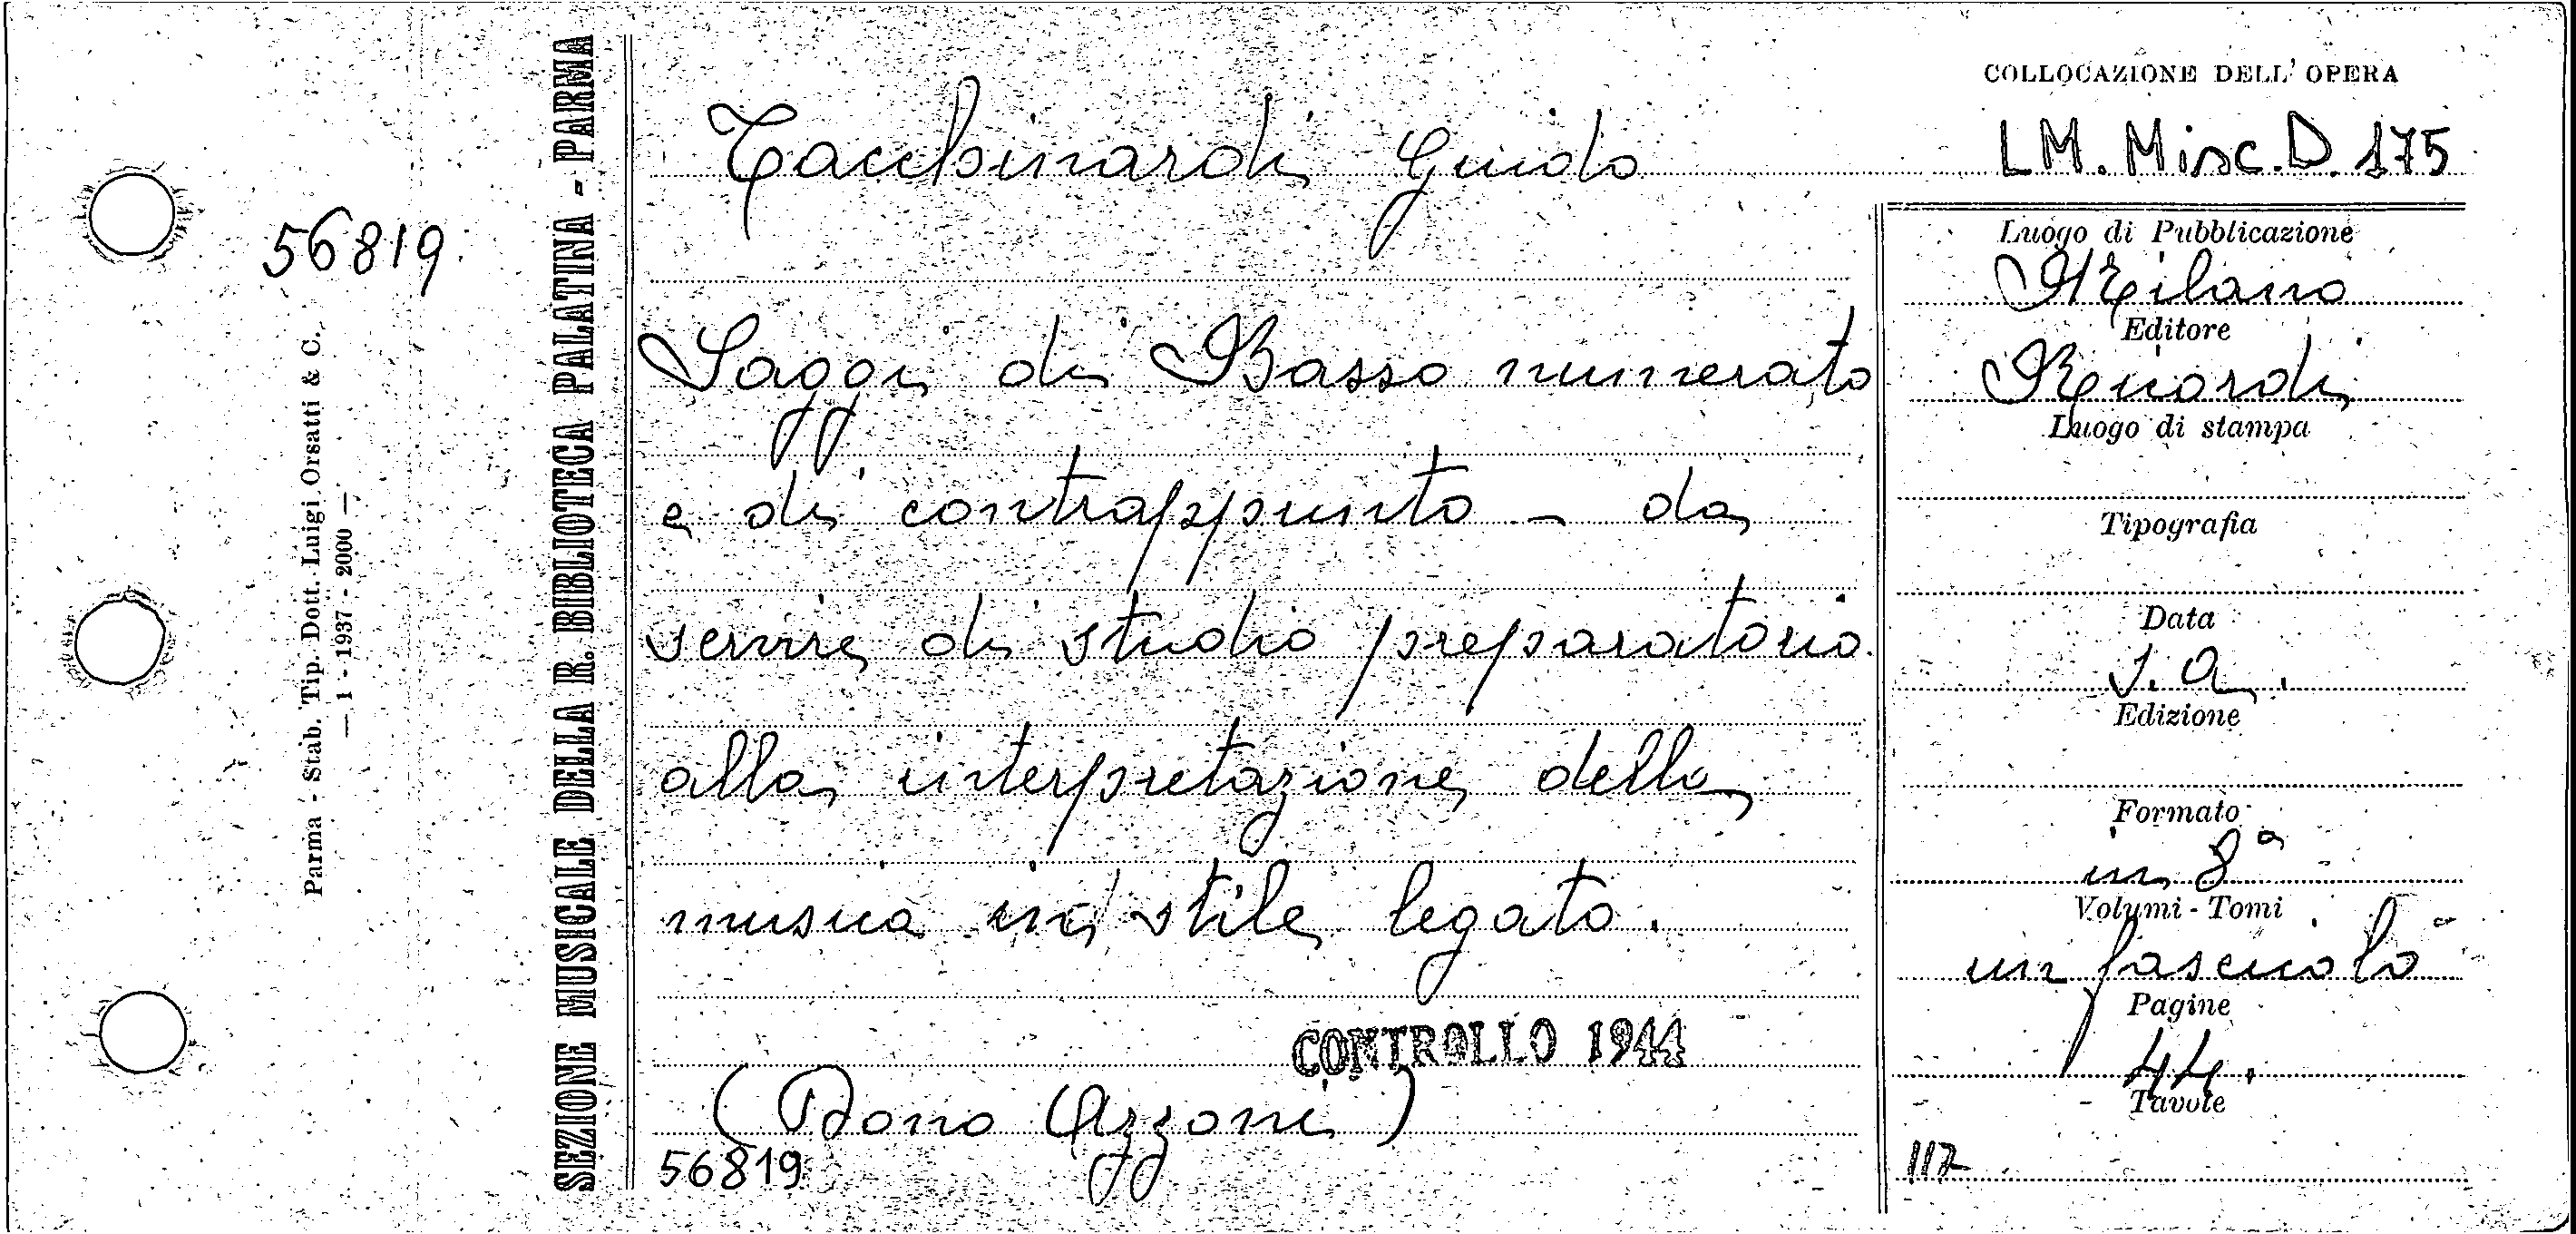 COLLOCAZIONE DELL' OPERA
Tacchinardi Guido
LM. Misc. D. 175
56819
Parma - Stab. Tip. Dott. Luigi Orsatti & C.
— 1 - 1937 - 2000 —
SEZIONE MUSICALE DELLA R. BIBLIOTECA PALATINA - PARMA
Saggi di Basso numerato
e di contrappunto - da
servire di studio preparatorio
alla interpretazione della
musica in stile legato.
CONTROLLO 1944
(Dono Azzoni)
56819
Luogo di Pubblicazione
Milano
Editore
Ricordi
Luogo di stampa
Tipografia
Data
s. a.
Edizione
Formato
in 8°
Volumi - Tomi
un fascicolo
Pagine
44.
Tavole
117